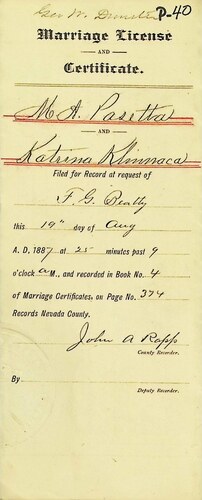 Geo W. P-40
Marriage License
AND
Certificate.
M. A. Pasetta
AND
Katrina Klinnaca
Filed for Record at request of
F. G. Beatty
this 19" day of Aug
A. D. 1887 at 25 minutes past 9
o'clock a M., and recorded in Book No. 4
of Marriage Certificates, on Page No. 374
Records Nevada County.
John A Rapp
County Recorder.
By
Deputy Recorder.